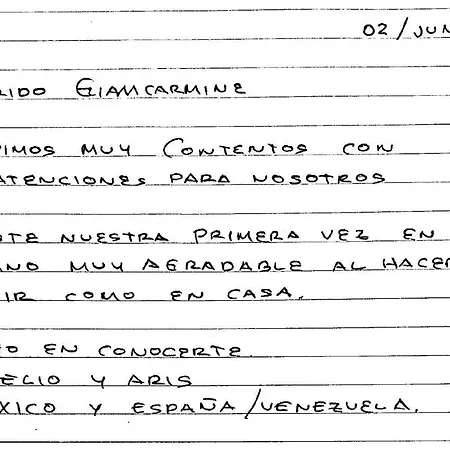 02/JUN
RIDO GIANCARMINE
IMOS MUY CONTENTOS CON
ATENCIONES PARA NOSOTROS
TE NUESTRA PRIMERA VEZ EN
NO MUY AGRADABLE AL HACER
IR COMO EN CASA.
O EN CONOCERTE
ELIO Y ARIS
XICO Y ESPAÑA/VENEZUELA.